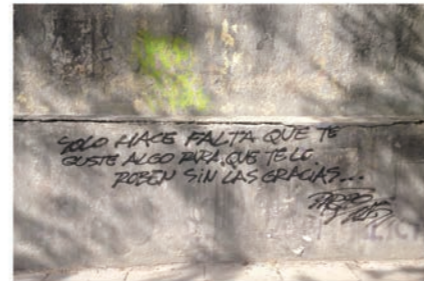 SOLO HACE FALTA QUE TE
GUSTE ALGO PARA QUE TE LO
ROBEN SIN LAS GRACIAS...